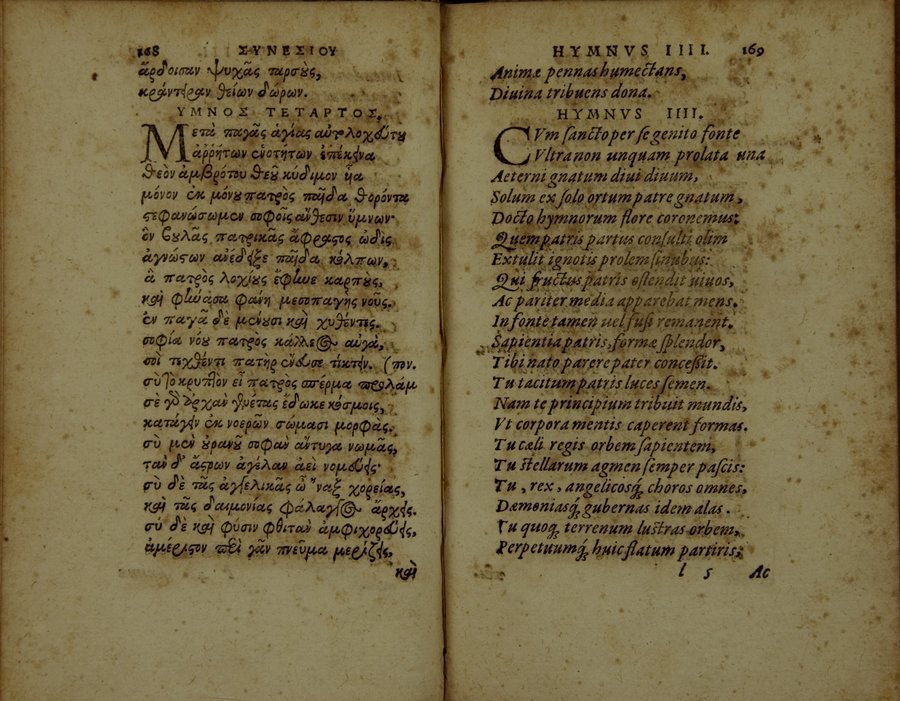 168 ΣΥΝΕΣΙΟΥ
ἄρδοισαν ψυχᾶς ταρσοὺς,
κράντειραν θείων δώρων.
ΥΜΝΟΣ ΤΕΤΑΡΤΟΣ.
Μετὰ παγᾶς ἁγίας αὐτολοχεύτου
ἀῤῥήτων ἑνοτήτων ἐπέκεινα
θεὸν ἀμβρότου θεοῦ κύδιμον ἧα
μόνον ἐκ μόνου πατρὸς παῖδα θορόντα
στεφανώσωμεν σοφοῖς ἄνθεσιν ὕμνων·
ὃν βουλᾶς πατρικᾶς ἄφραστος ὠδὶς
ἀγνώστων ἀνέδειξε παῖδα κόλπων,
ἃ πατρὸς λοχίους ἔφηνε καρποὺς,
καὶ φήνασα φάνη μεσοπαγὴς νοῦς.
ἐν παγᾷ δὲ μένουσι καὶ χυθέντες.
σοφία νόου πατρὸς κάλλεος αὐγά,
σοὶ τεχθέντι πατὴρ ἔνευσε τίκτειν. (πον.
σὺ τὸ κρυπτὸν εἶ πατρὸς σπέρμα προλάμ
σὲ γὸ ἀρχὰν γενέτας ἔδωκε κόσμοις,
κατάγειν ἐκ νοερῶν σώμασι μορφάς.
σὺ μὲν οὐρανοῦ σοφὰν ἄντυγα νωμᾷς,
τὰν δ' ἄστρων ἀγέλαν ἀεὶ νομεύεις·
σὺ δὲ τᾶς ἀγγελικᾶς ὦ 'ναξ χορείας,
καὶ τᾶς δαιμονίας φάλαγγος ἄρχεις.
σὺ δὲ καὶ φύσιν φθιτὰν ἀμφιχορεύεις,
ἀμέριστον περὶ γᾶν πνεῦμα μερίζεις,
καὶ
HYMNVS IIII. 169
Animæ pennas humectans,
Diuina tribuens dona.
HYMNVS IIII.
CVm sancto per se genito fonte
Vltra non unquam prolata una
Aeterni gnatum diui diuum,
Solum ex solo ortum patre gnatum,
Docto hymnorum flore coronemus:
Quem patris partus consulti olim
Extulit ignotis prolem sinubus:
Qui fructus patris ostendit uiuos,
Ac pariter media apparebat mens.
In fonte tamen uel fusi remanent.
Sapientia patris, formæ splendor,
Tibi nato parere pater concessit.
Tu tacitum patris luces semen.
Nam te principium tribuit mundis,
Vt corpora mentis caperent formas.
Tu cæli regis orbem sapientem,
Tu stellarum agmen semper pascis:
Tu, rex, angelicosq́; choros omnes,
Dæmoniasq́; gubernas idem alas.
Tu quoq; terrenum lustras orbem,
Perpetuumq́; huic flatum partiris;
l 5 Ac